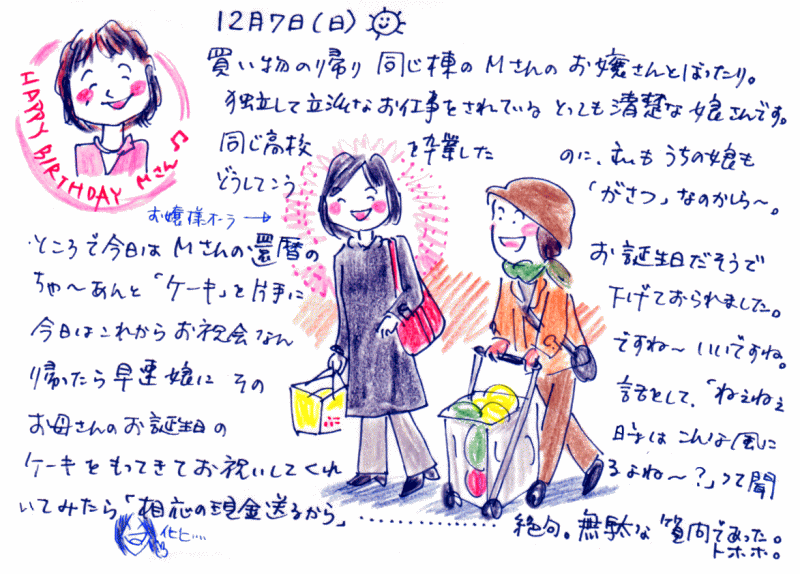 12月7日(日)
HAPPY BIRTHDAY Mさん♫
買い物の帰り 同じ棟の Mさんの お嬢さんとばったり。
独立して立派なお仕事をされている とっても清楚な娘さんです。
同じ高校 を卒業した のに、
どうしてこう うちの娘も
「がさつ」なのかしら〜。
お嬢様オーラ→
ところで今日はMさんの還暦の お誕生日だそうで
ちゃ〜あんと「ケーキ」を片手に 下げておられました。
今日はこれからお祝会なん ですね〜いいですね。
帰ったら早速娘に その 話をして、「ねえねえ
お母さんのお誕生日の 日にはこんな風に
ケーキをもってきてお祝いしてくれ るよね〜?」って聞
いてみたら「相応の現金送るから」……………… 絶句。無駄な質問であった。
トホホ。
イヒヒ....